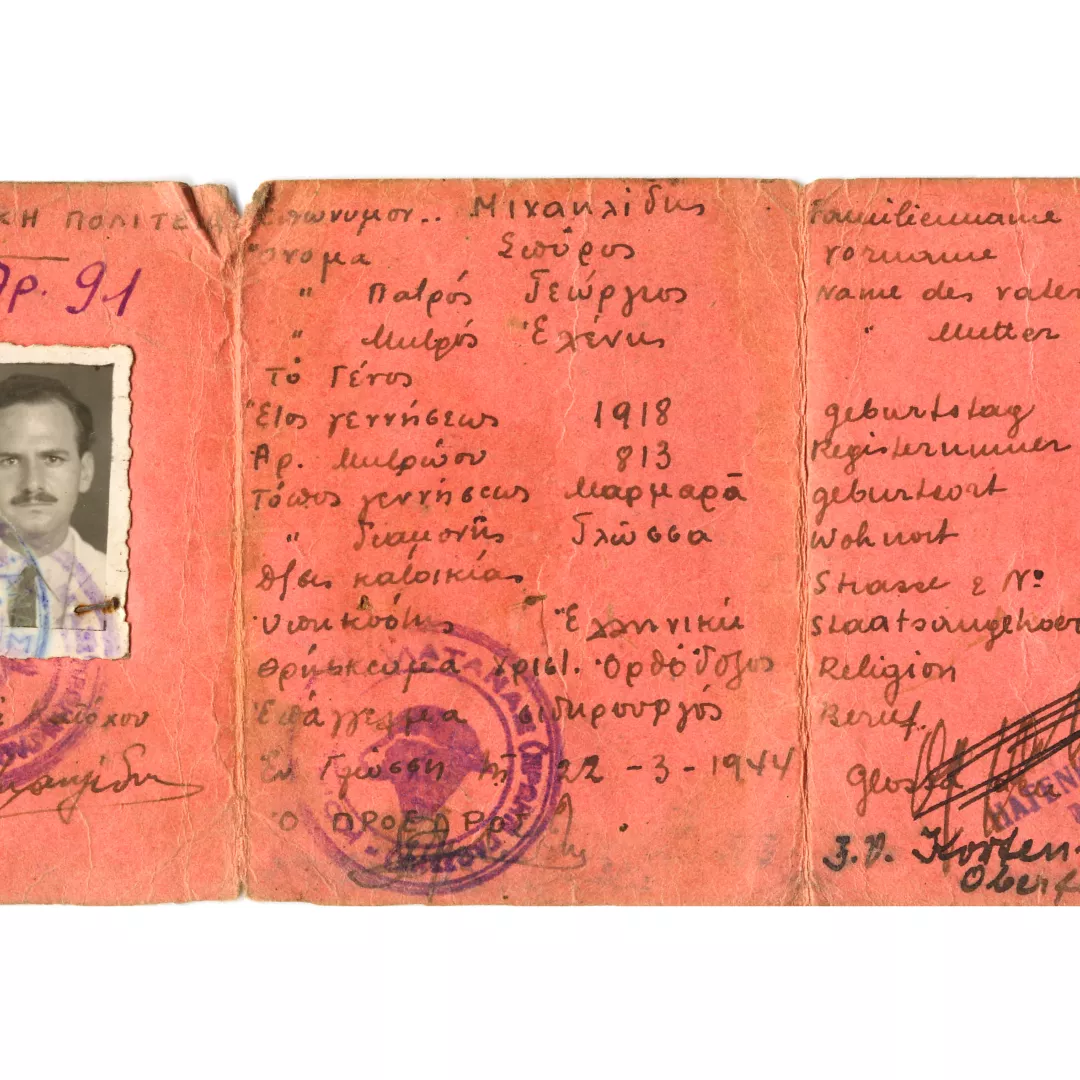 ΚΗ ΠΟΛΙΤΕ
Αρ. 91
Κατόχου
Ἐπώνυμον.. Μιχαηλίδης
Ὄνομα Σπῦρος
" Πατρός Γεώργιος
" Μητρός Ἑλένης
Τό Γένος
Ἔτος γεννήσεως 1918
Ἀρ. Μητρώου 813
Τόπος γεννήσεως Μαρμαρᾶ
" Διαμονῆς Γλῶσσα
Θέσις κατοικίας
Ὑπηκοότης Ἑλληνική
Θρήσκευμα χριστ. Ὀρθόδοξος
Ἐπάγγελμα σιδηρουργός
Ἐν Γλώσσῃ τῇ 22-3-1944
Ὁ ΠΡΟΕΔΡΟ
Familienname
Vorname
Name des Vaters
" Mutter
geburtstag
Registernummer
geburtsort
Wohnort
Strasse & No
Staatsangehoer
Religion
Beruf.
Glossa
HAFEN
J.V. Korten
Oberf